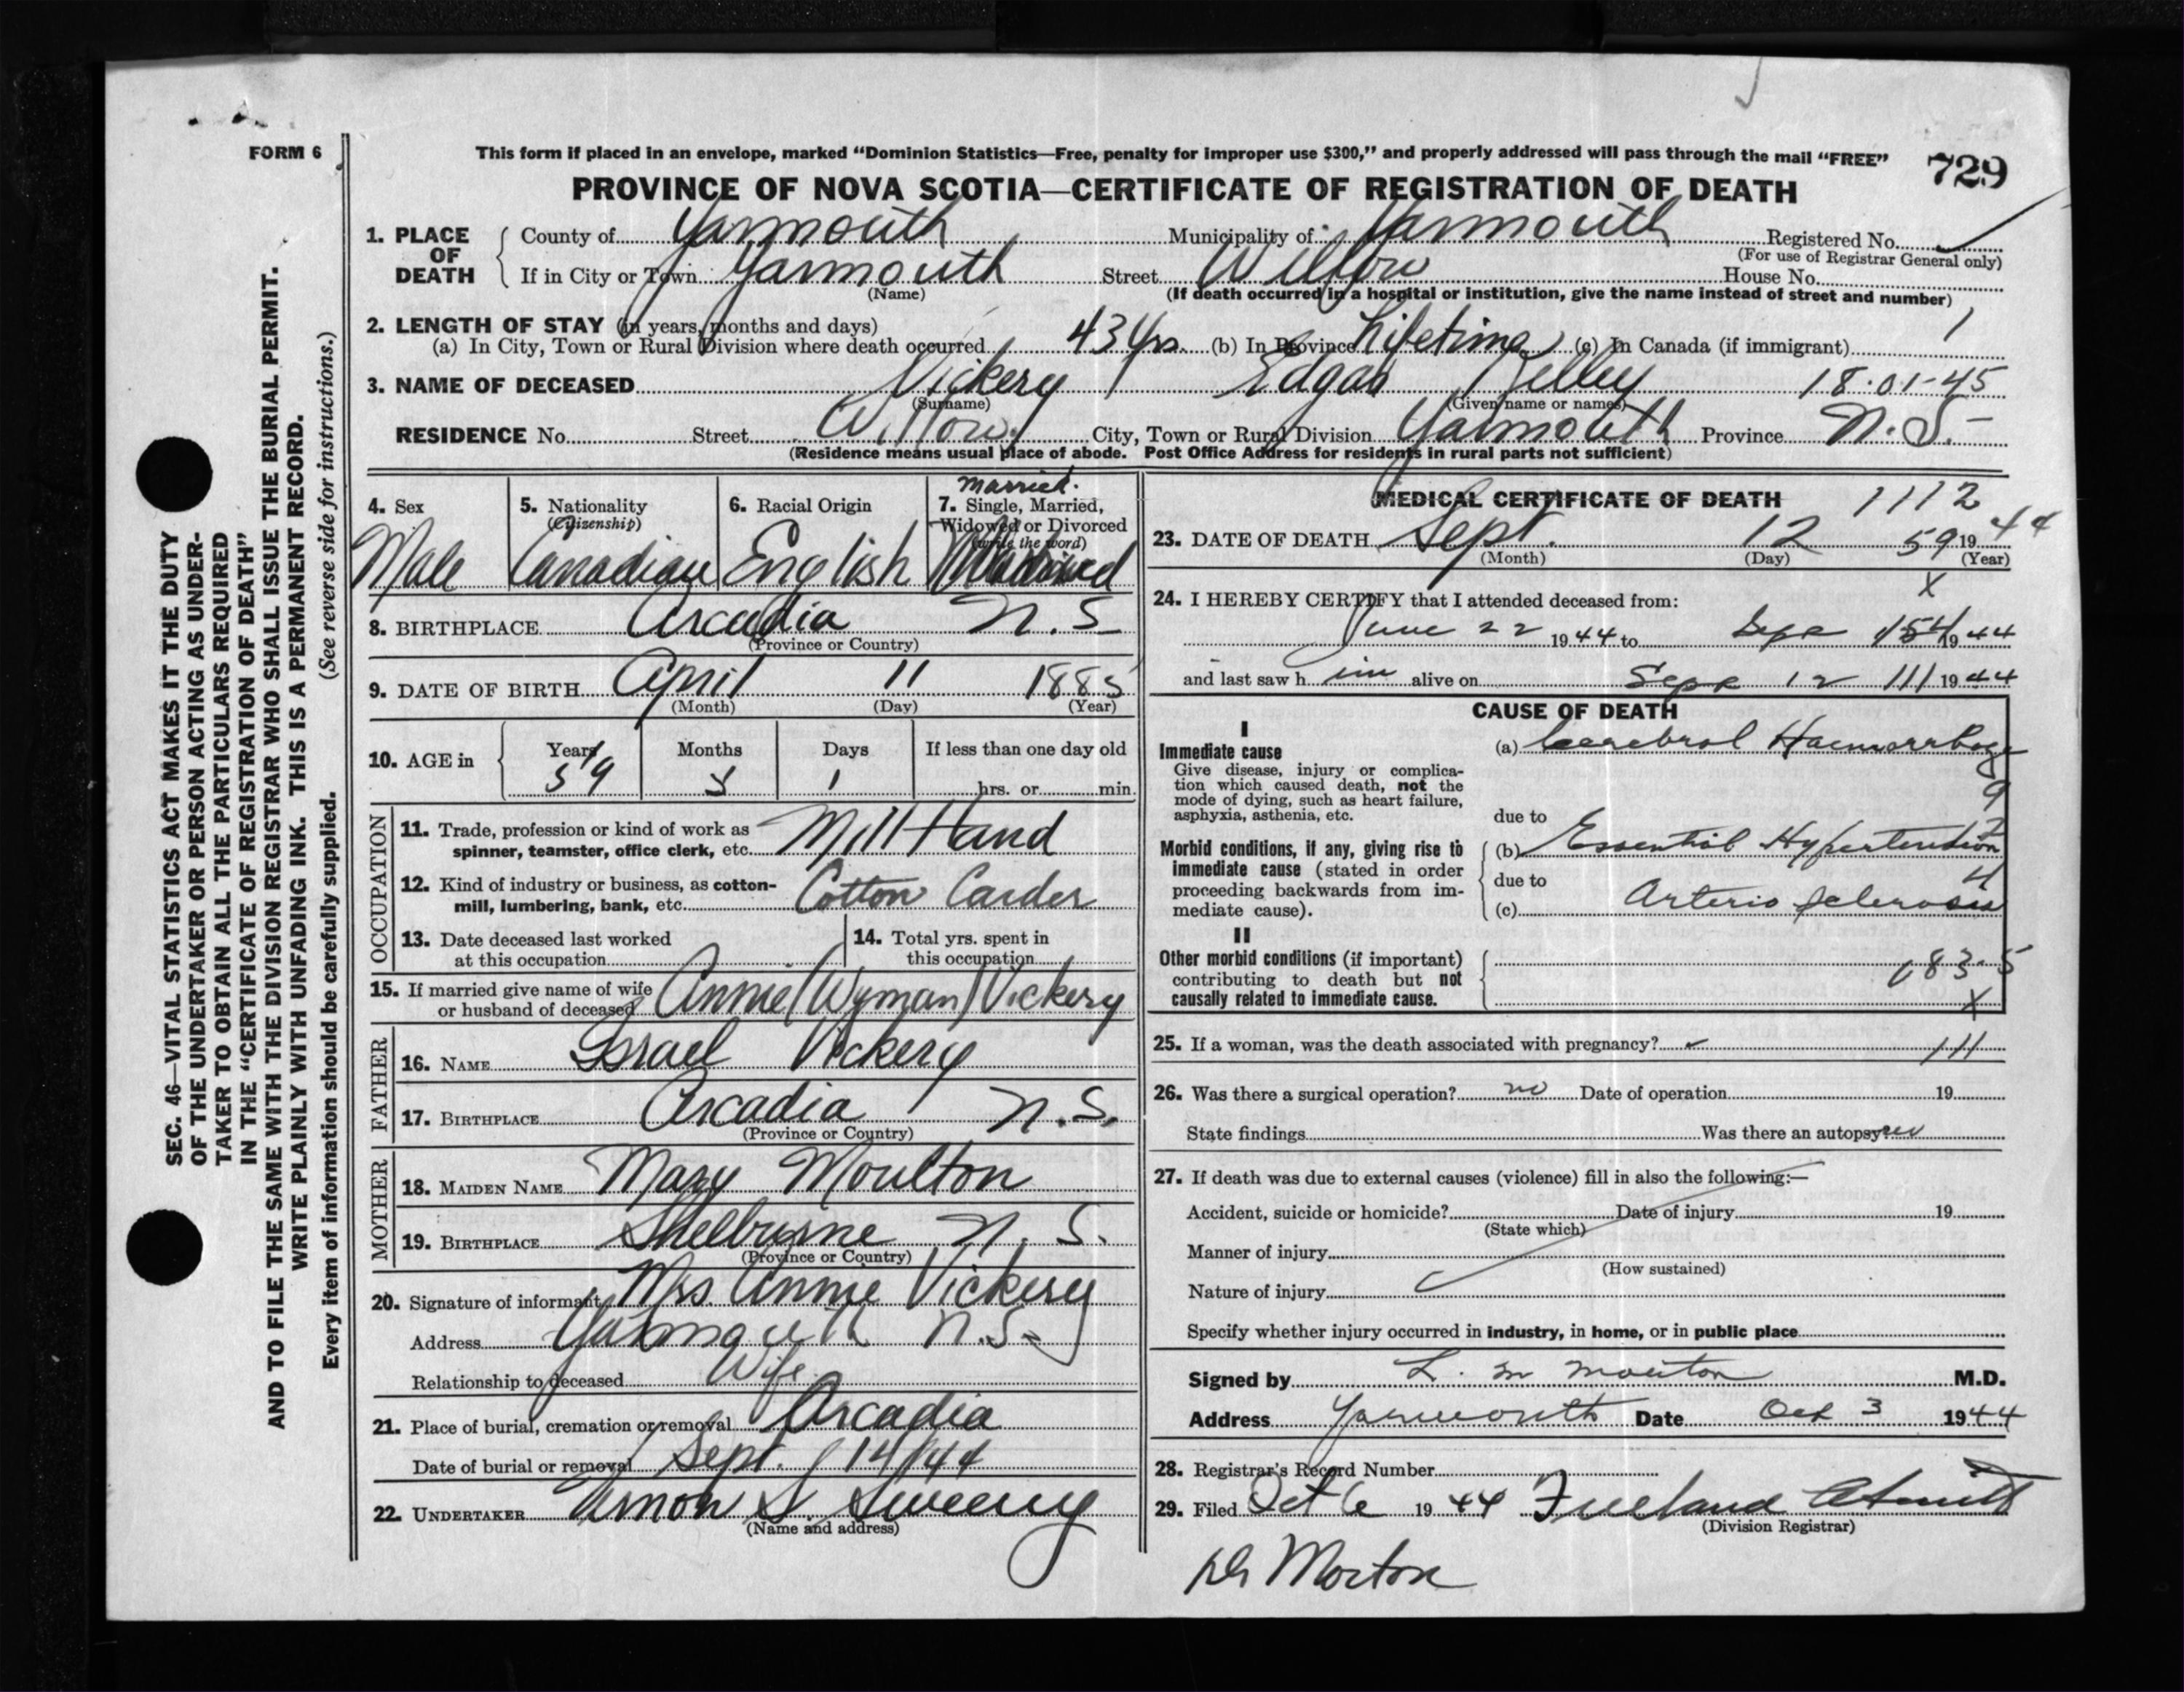 FORM 6
This form if placed in an envelope, marked “Dominion Statistics—Free, penalty for improper use $300,” and properly addressed will pass through the mail “FREE”
729
PROVINCE OF NOVA SCOTIA—CERTIFICATE OF REGISTRATION OF DEATH
1. PLACE OF DEATH County of Yarmouth Municipality of Yarmouth Registered No.
(For use of Registrar General only)
If in City or Town Yarmouth Street Willow House No.
(Name) (If death occurred in a hospital or institution, give the name instead of street and number)
2. LENGTH OF STAY (in years, months and days)
(a) In City, Town or Rural Division where death occurred 43 yrs. (b) In Province Lifetime (c) In Canada (if immigrant) 1
3. NAME OF DECEASED Vickery Edgar Kelley 18·01-45
(Surname) (Given name or names)
RESIDENCE No. Street Willow City, Town or Rural Division Yarmouth Province N.S.
(Residence means usual place of abode. Post Office Address for residents in rural parts not sufficient)
4. Sex
Male
5. Nationality
(Citizenship)
Canadian
6. Racial Origin
English
married.
7. Single, Married,
Widowed or Divorced
(write the word)
8. BIRTHPLACE Arcadia N.S
(Province or Country)
9. DATE OF BIRTH April 11 1885
(Month) (Day) (Year)
10. AGE in Years Months Days If less than one day old
59 5 1 hrs. or min.
OCCUPATION
11. Trade, profession or kind of work as
spinner, teamster, office clerk, etc. Mill Hand
12. Kind of industry or business, as cotton-
mill, lumbering, bank, etc. Cotton Carder
13. Date deceased last worked
at this occupation
14. Total yrs. spent in
this occupation
15. If married give name of wife
or husband of deceased Annie (Wyman) Vickery
FATHER
16. NAME Israel Vickery
17. BIRTHPLACE Arcadia N.S.
(Province or Country)
MOTHER
18. MAIDEN NAME Mary Moulton
19. BIRTHPLACE Shelburne N.S.
(Province or Country)
20. Signature of informant Mrs. Annie Vickery
Address Yarmouth N.S.
Relationship to deceased Wife
21. Place of burial, cremation or removal Arcadia
Date of burial or removal Sept. 14/44
22. UNDERTAKER Vernon S. Sweeny
(Name and address)
MEDICAL CERTIFICATE OF DEATH 1112
23. DATE OF DEATH Sept. 12 59 19 44
(Month) (Day) (Year)
X
24. I HEREBY CERTIFY that I attended deceased from:
June 22 1944 to Sept 19 44
and last saw h im alive on Sept 12 111 19 44
CAUSE OF DEATH
I
Immediate cause
Give disease, injury or complica-
tion which caused death, not the
mode of dying, such as heart failure,
asphyxia, asthenia, etc.
(a) Cerebral Haemorrhage
9
due to
Morbid conditions, if any, giving rise to
immediate cause (stated in order
proceeding backwards from im-
mediate cause).
(b) Essential Hypertension
due to 4
(c) Arterio Sclerosis
II
Other morbid conditions (if important)
contributing to death but not
causally related to immediate cause.
083·5
X
25. If a woman, was the death associated with pregnancy? 111
26. Was there a surgical operation? no Date of operation 19
State findings Was there an autopsy? no
27. If death was due to external causes (violence) fill in also the following:—
Accident, suicide or homicide? Date of injury 19
(State which)
Manner of injury
(How sustained)
Nature of injury
Specify whether injury occurred in industry, in home, or in public place
Signed by L. M Morton M.D.
Address Yarmouth Date Oct 3 1944
28. Registrar's Record Number
29. Filed Oct 6 19 44 Freeland
(Division Registrar)
Dr Morton
SEC. 46—VITAL STATISTICS ACT MAKES IT THE DUTY
OF THE UNDERTAKER OR PERSON ACTING AS UNDER-
TAKER TO OBTAIN ALL THE PARTICULARS REQUIRED
IN THE “CERTIFICATE OF REGISTRATION OF DEATH”
AND TO FILE THE SAME WITH THE DIVISION REGISTRAR WHO SHALL ISSUE THE BURIAL PERMIT.
WRITE PLAINLY WITH UNFADING INK. THIS IS A PERMANENT RECORD.
Every item of information should be carefully supplied. (See reverse side for instructions.)